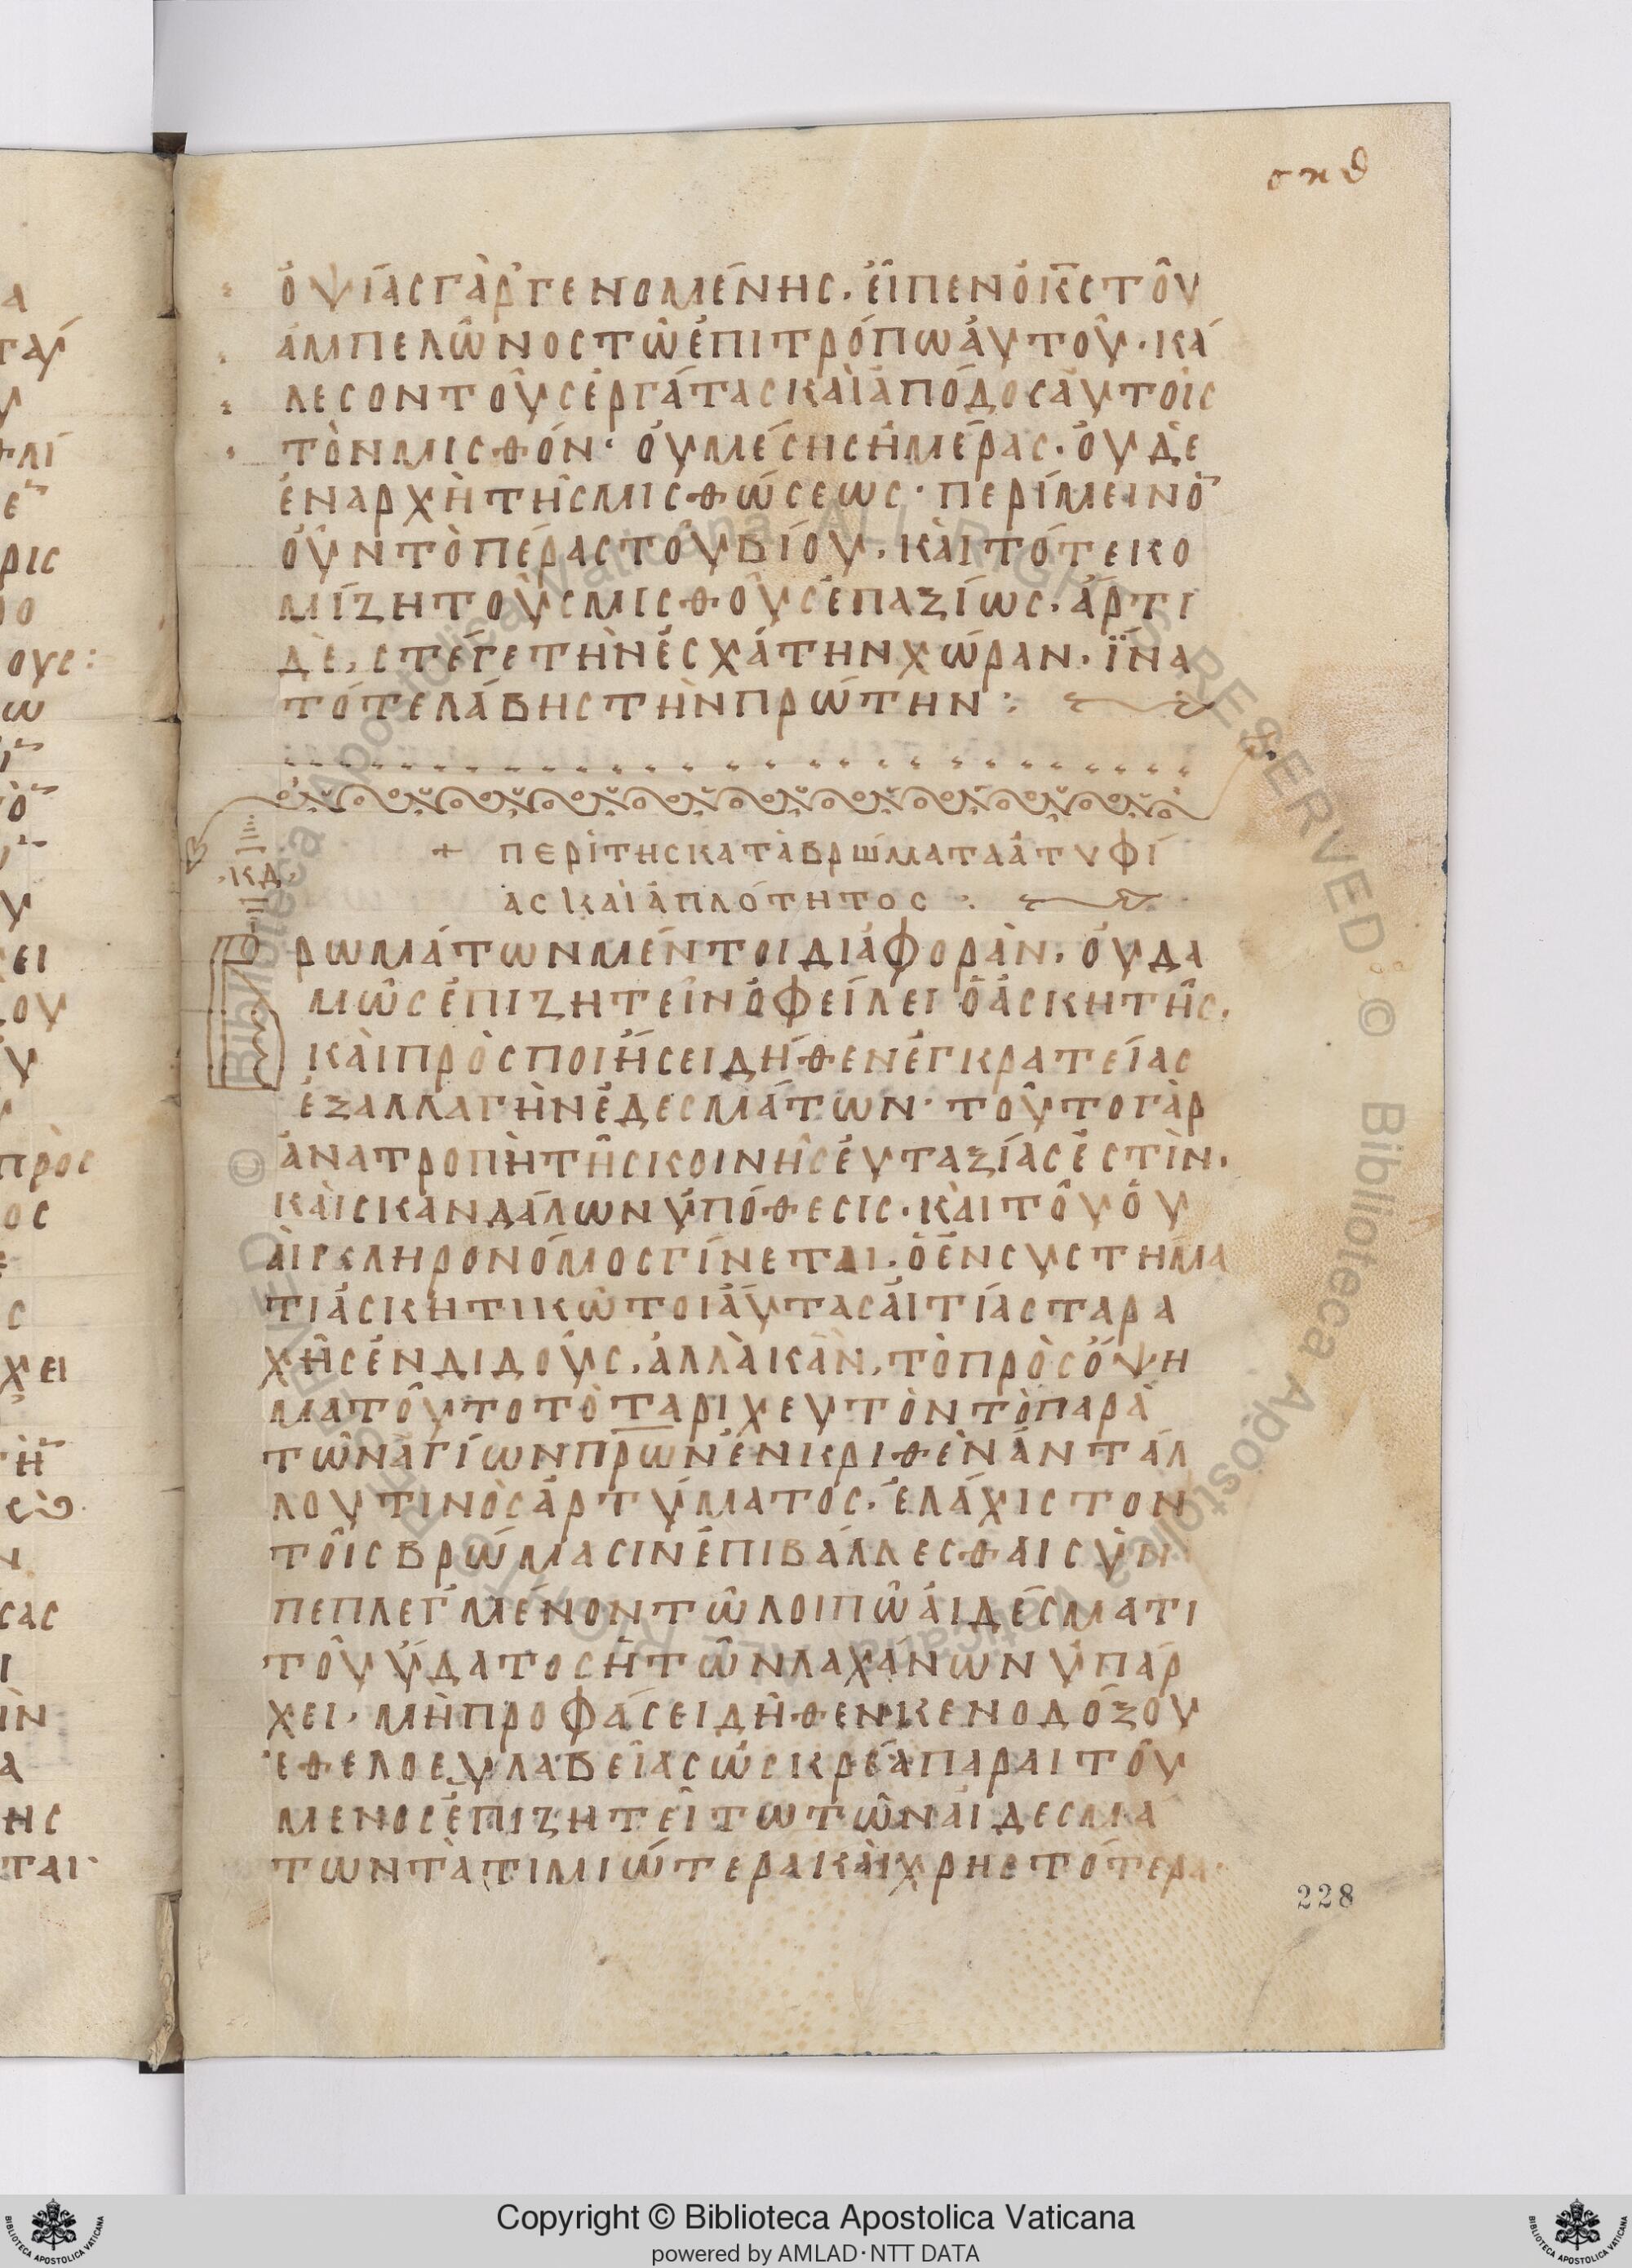 σκθ
ὀψίας γὰρ γενομένης. εἶπεν ὁ κ̅ς̅ τοῦ
ἀμπελῶνος τῶ ἐπιτρόπω ἀυτοῦ· κά
λεσον τοὺς ἐργάτας καὶ ἀπόδος ἀυτοῖς
τὸν μισθόν· οὐ μέσης ἡμέρας. οὐδὲ
ἐν αρχῆ τῆς μισθώσεως· περίμεινο̄
οὖν τὸ πέρας τοῦ βίου. καὶ τότε κο
μίζη τοὺς μισθοὺς ἐπαξίως. ἄρτι
δὲ, στέγε τὴν ἐσχάτην χώραν. ἵνα
τότε λάβης τὴν πρώτην :
+ περὶ τῆς κατὰ βρώματα ἀτυφί
ας καὶ ἁπλότητος :
·κδ·
Βρωμάτων μέντοι διάφορὰν. οὐδα
μῶς ἐπιζητεῖν ὀφείλει ὁ ἀσκητῆς.
καὶ προσποιήσει δῆθεν ἐγκρατείας
ἐξαλλαγὴν ἐδεσμάτων· τοῦτο γὰρ
ἀνατροπὴ τῆς κοινῆς ἐυταξίας ἐστὶν.
καὶ σκανδάλων ὑπόθεσις. καὶ τοῦ ὀυ
αὶ κληρονόμος γίνεται. ὁ ἐν συστήμα
τι ἀσκητικῶ τοιάυτας ἀιτίας ταρα
χῆς ἐνδιδούς. ἀλλὰ κἂν, τὸ πρὸς ὄψη
μα τοῦτο τὸ ταριχευτὸν τὸ παρὰ
τῶν ἁγίων π̅ρ̅ω̅ν̅ ἐνκριθὲν ἀντ ἀλ
λου τινὸς ἀρτύματος. ἐλάχιστον
τοῖς βρώμασιν ἐπιβάλλεσθαι συν
πεπλεγμένον τῶ λοιπῶ ἀιδέσματι
τοῦ ὕδατος ἢ τῶν λαχάνων ὑπάρ
χει. μὴ προφάσει δῆθεν κενοδόξου
ἐθελοευλαβείας ὡς κρέα παραιτού
μενος ἐπιζητείτω τῶν ἀιδεσμά
των τὰ τιμιώτερα καὶ χρηστότερα
228
© Biblioteca Apostolica Vaticana ALL RIGHTS RESERVED
Copyright © Biblioteca Apostolica Vaticana
powered by AMLAD·NTT DATA